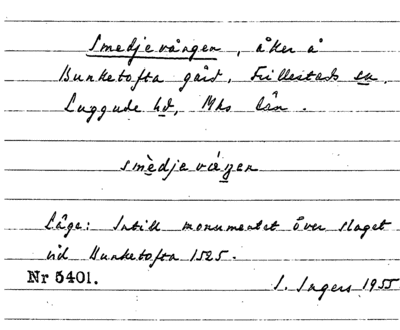 Smedjevången, åker å
Bunketofta gård, Frillestads sn,
Luggude hd, Mhs län.
smèdjevaŋen
Läge: Intill monumentet över slaget
vid Bunketofta 1525.
Nr 5401.
I. Ingers 1955